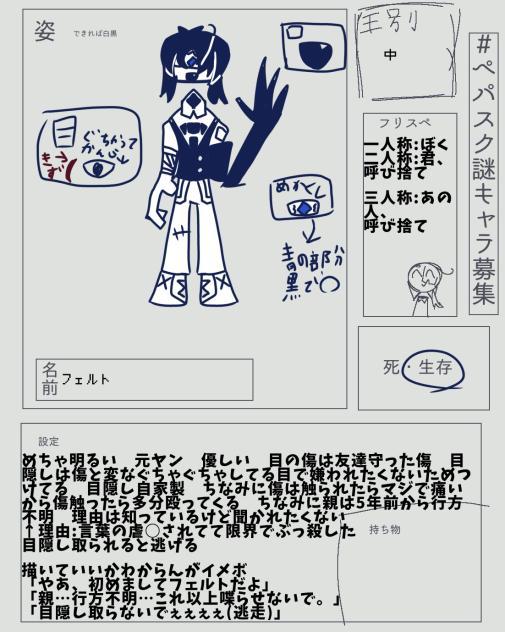 姿
できれば白黒
性別
中
#ペパスク謎キャラ募集
フリスペ
一人称:ぼく
二人称:君、
呼び捨て
三人称:あの
人、
呼び捨て
ぐちゃって
かんじ
きず
めかくし
青の部分
黒で○
死・生存
名前
フェルト
設定
めちゃ明るい 元ヤン 優しい 目の傷は友達守った傷 目
隠しは傷と変なぐちゃぐちゃしてる目で嫌われたくないためつ
けてる 目隠し自家製 ちなみに傷は触られたらマジで痛い
から傷触ったら多分殴ってくる ちなみに親は5年前から行方
不明 理由は知っているけど聞かれたくない
↑理由:言葉の虐◯されてて限界でぶっ殺した
目隠し取られると逃げる
持ち物
描いていいかわからんがイメボ
「やあ、初めましてフェルトだよ」
「親…行方不明…これ以上喋らせないで。」
「目隠し取らないでぇぇぇぇ(逃走)」